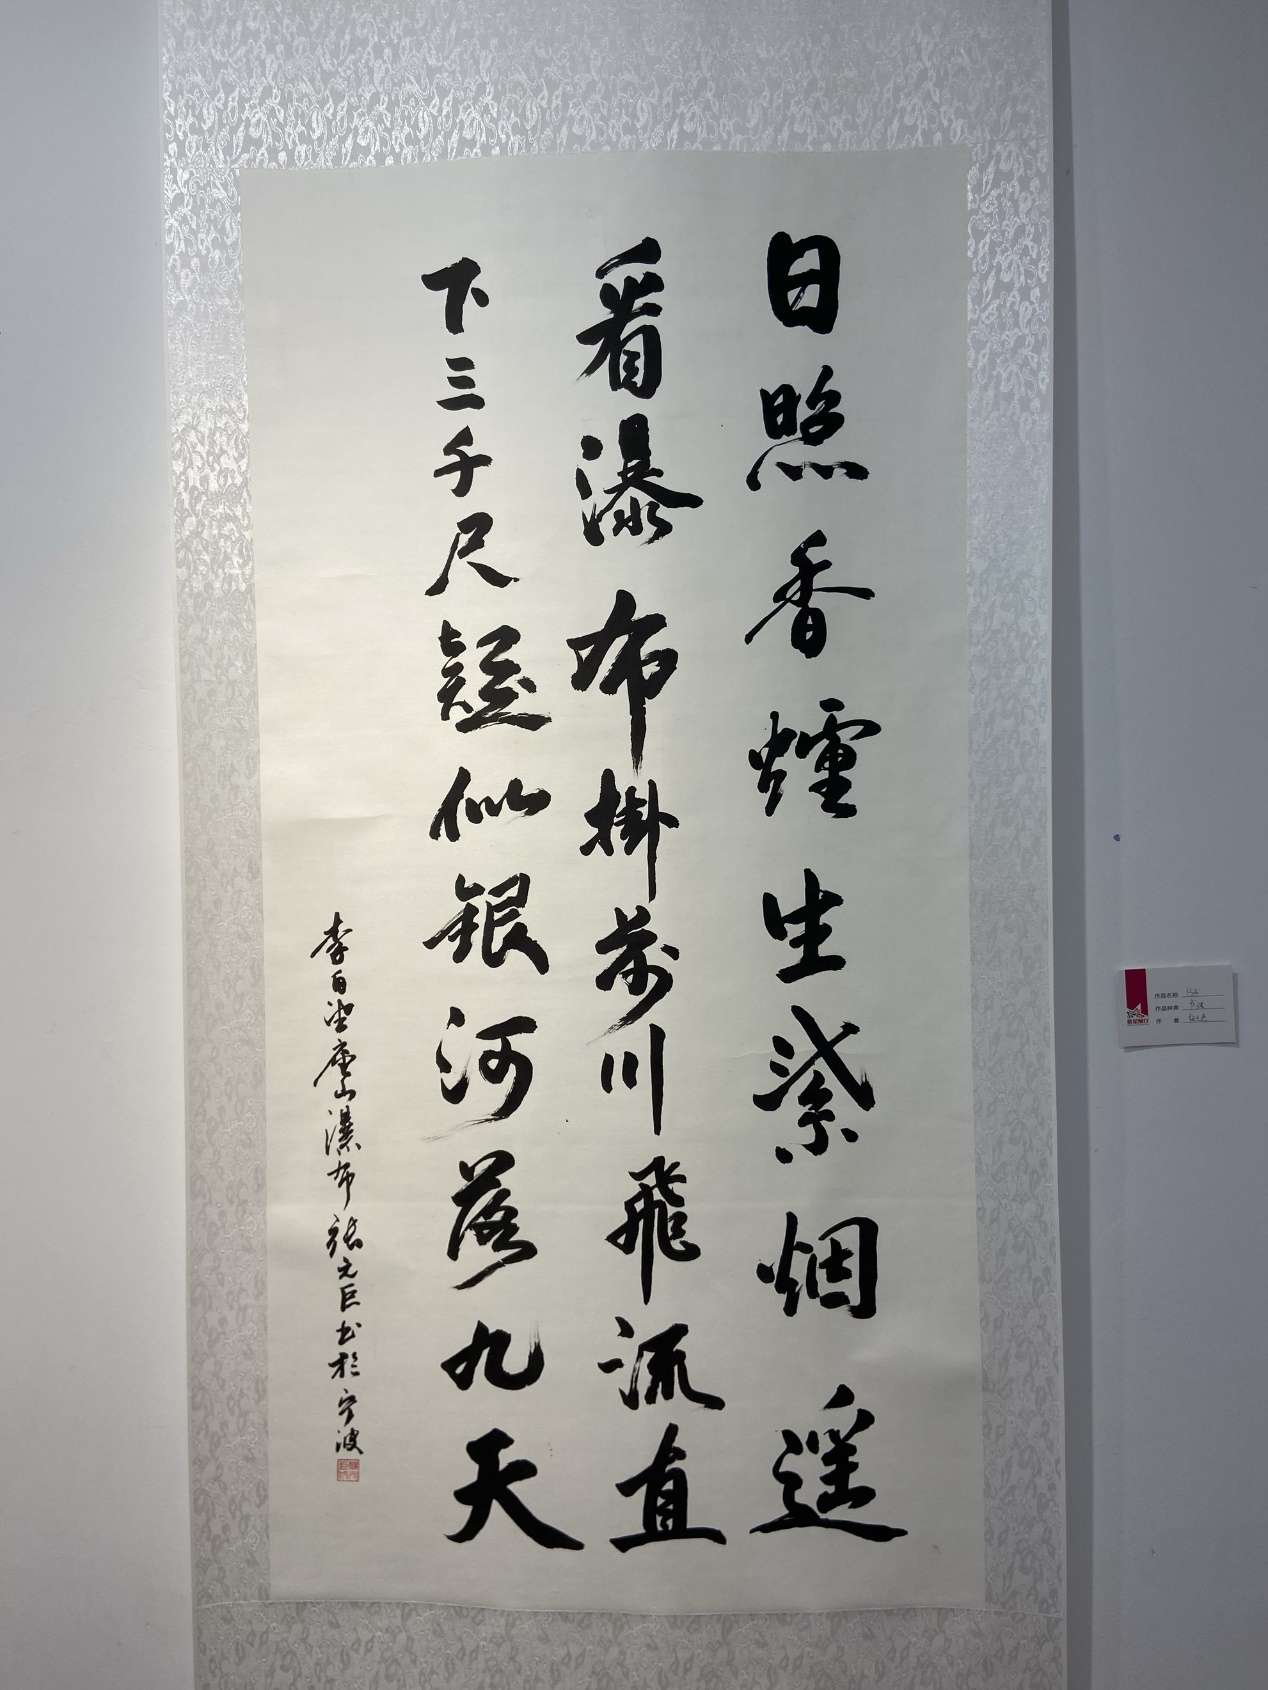 日照香煙生紫烟遥
看瀑布掛前川飛流直
下三千尺疑似銀河落九天
李白望庐山瀑布張元巨书於宁波
作品名称
作品种类 书法
作者